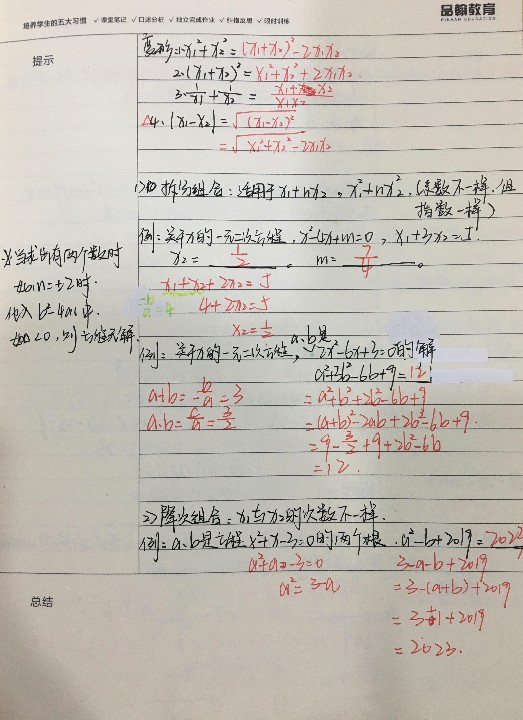 培养学生的五大习惯 ✓课堂笔记 ✓口述分析 ✓独立完成作业 ✓纠错反思 ✓限时训练
品翰教育
PINHAN EDUCATION
提示
变形:1.x₁²+x₂²=(x₁+x₂)²-2x₁x₂
2.(x₁+x₂)²=x₁²+x₂²+2x₁x₂.
3.1/x₁+1/x₂=(x₁+x₂)/(x₁x₂)
△4.|x₁-x₂|=√(x₁-x₂)²
=√(x₁²+x₂²-2x₁x₂)
拆分组合:适用于x₁+nx₂,x₁²+nx₂².(系数不一样.但
指数一样)
例:关于x的一元二次方程,x²-4x+m=0,x₁+3x₂=5.
x₂=1/2。m=7/4。
※当求的有两个数时
如n=±2时.
代入b²-4ac中.
如<0,则方程无解.
x₁+x₂+2x₂=5
-b/a=4
4+2x₂=5
x₂=1/2
例:关于x的一元二次方程,a.b是2x²-6x+3=0的解
a²+3b²-6b+9=12
a+b=-b/a=3
=a²+b²+2b²-6b+9
a.b=c/a=3/2
=(a+b)²-2ab+2b²-6b+9.
=9-3/2+9+2b²-6b
=12.
(2)降次组合:x₁与x₂的次数不一样.
例:a.b是方程x²+x-3=0的两个根.a²-b+2019=2023
a²+a-3=0
a²=3-a
3-a-b+2019
=3-(a+b)+2019
=3+1+2019
=2023.
总结